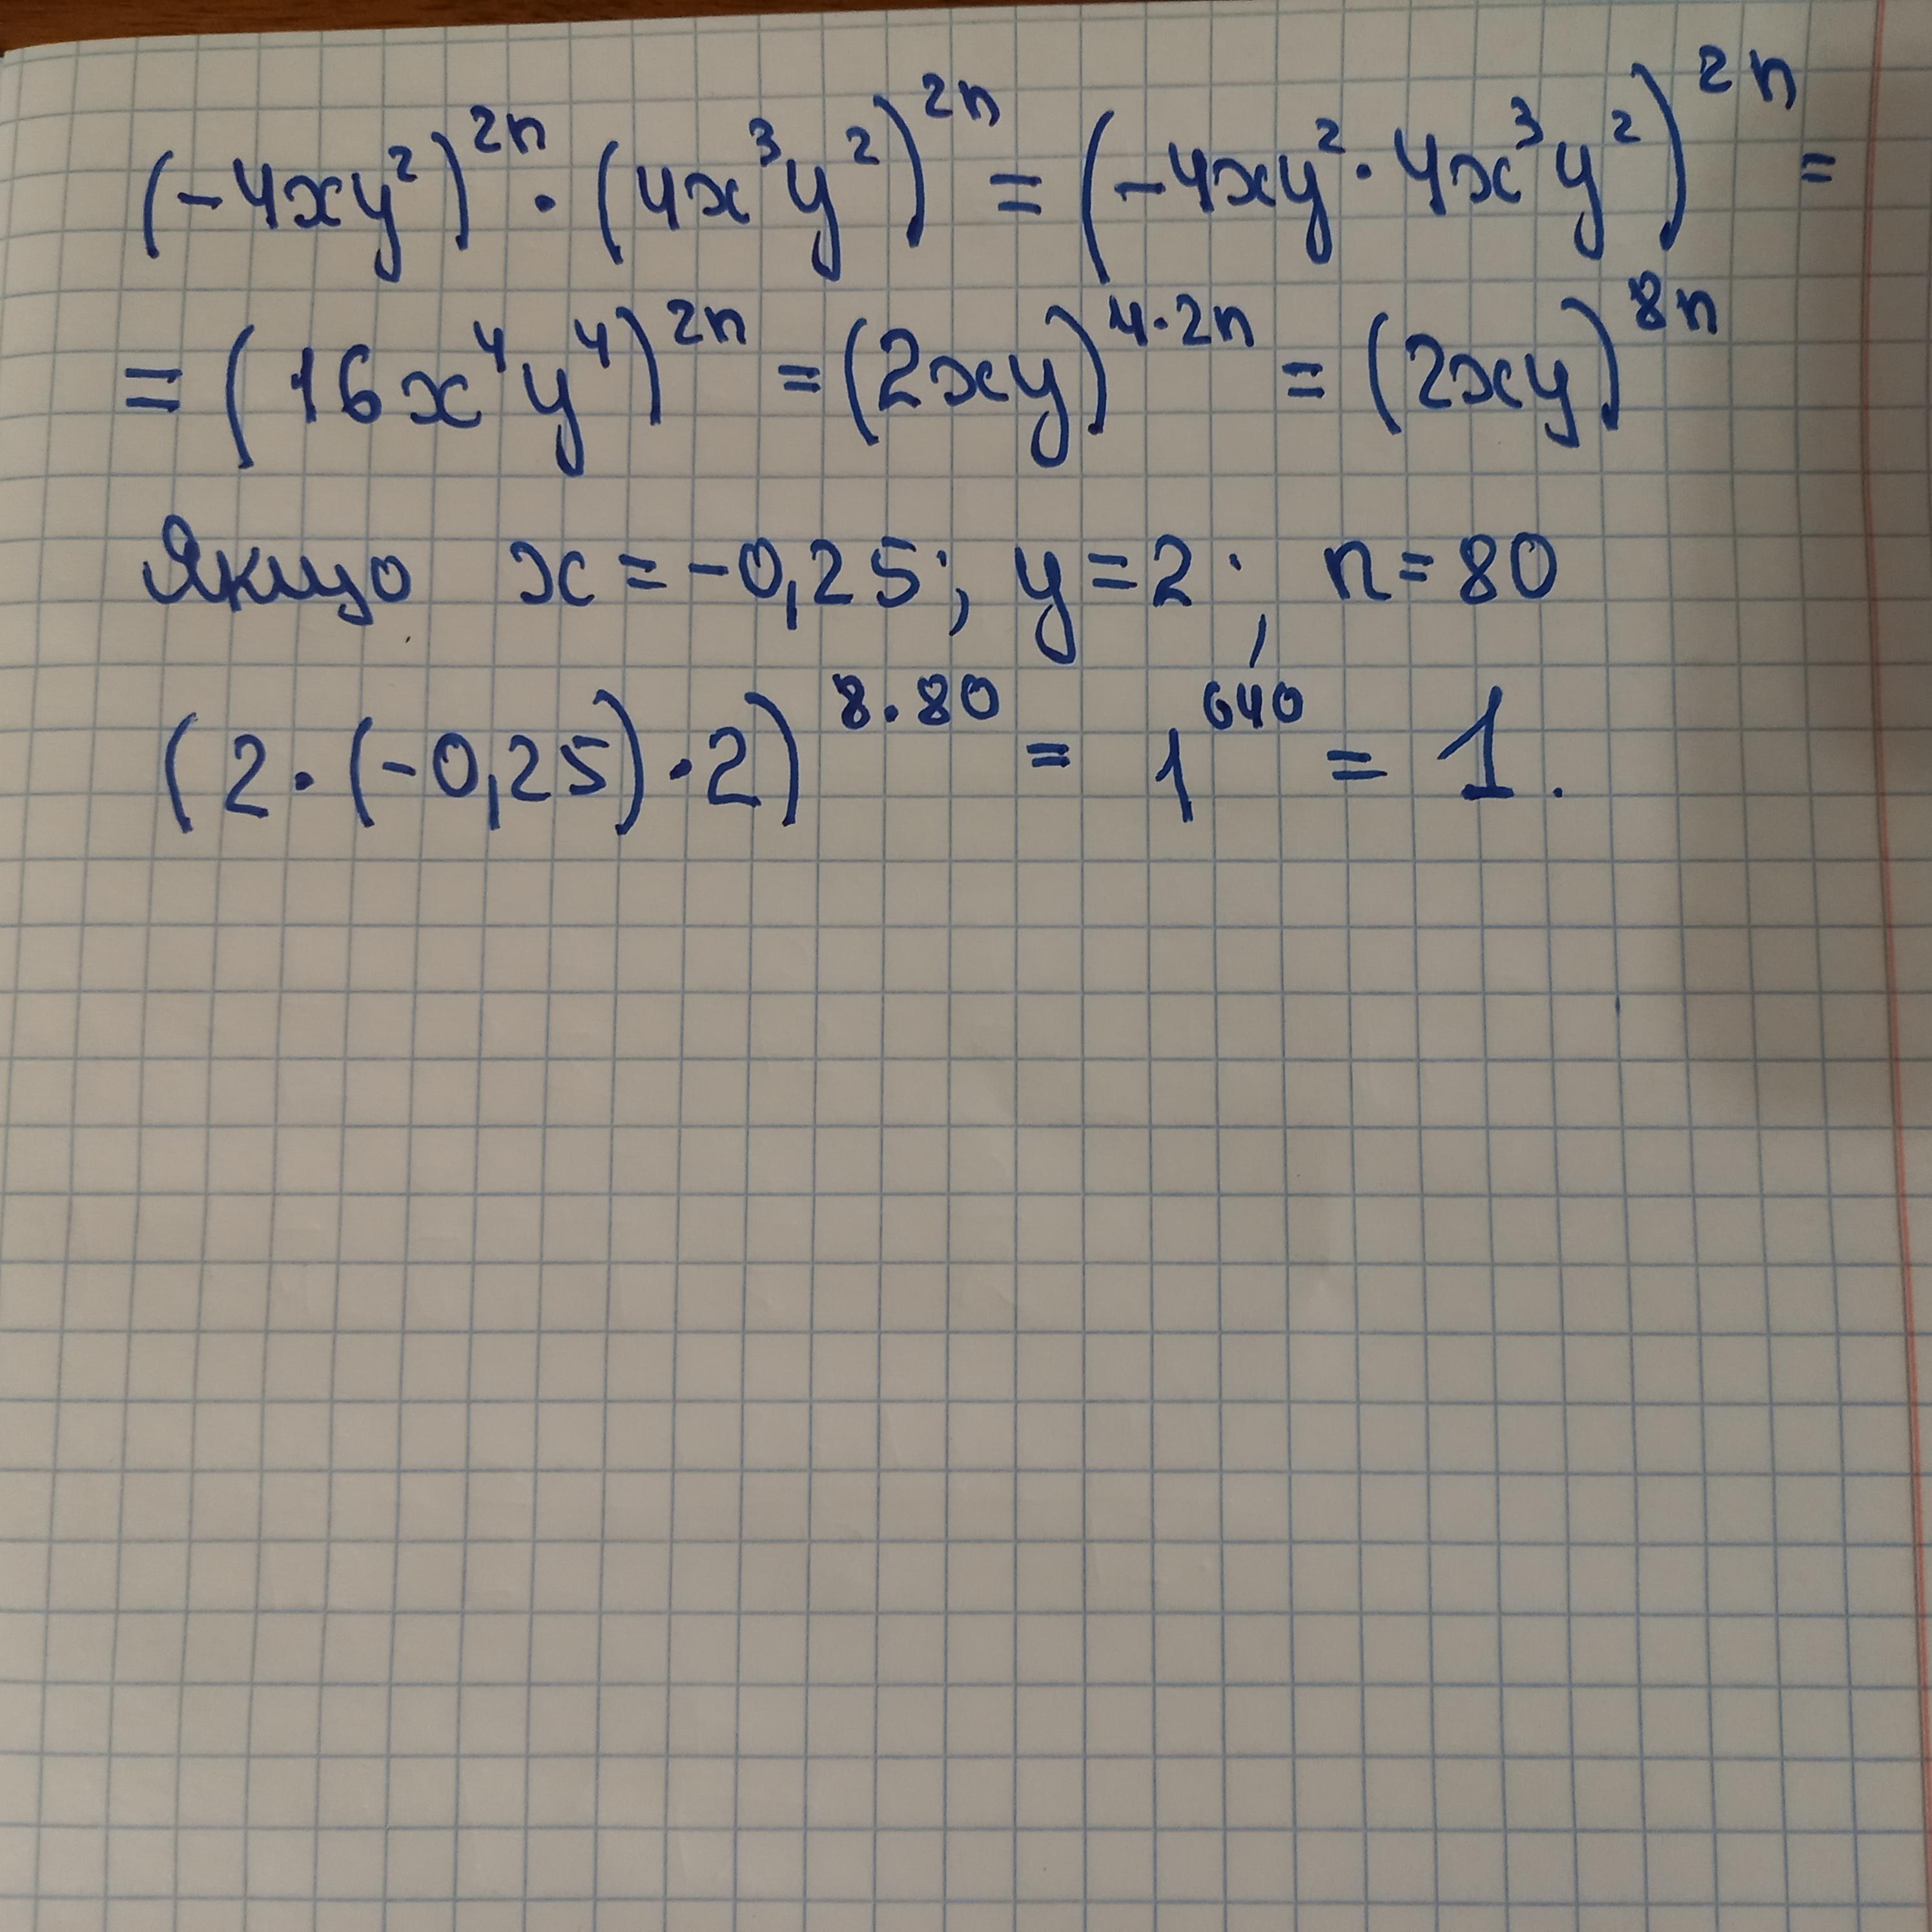 (-4xy²)²ⁿ · (4x³y²)²ⁿ = (-4xy² · 4x³y²)²ⁿ =
= (16x⁴y⁴)²ⁿ = (2xy)⁴·²ⁿ = (2xy)⁸ⁿ
Якщо x = -0,25; y = 2; n = 80
(2 · (-0,25) · 2)⁸·⁸⁰ = 1⁶⁴⁰ = 1.